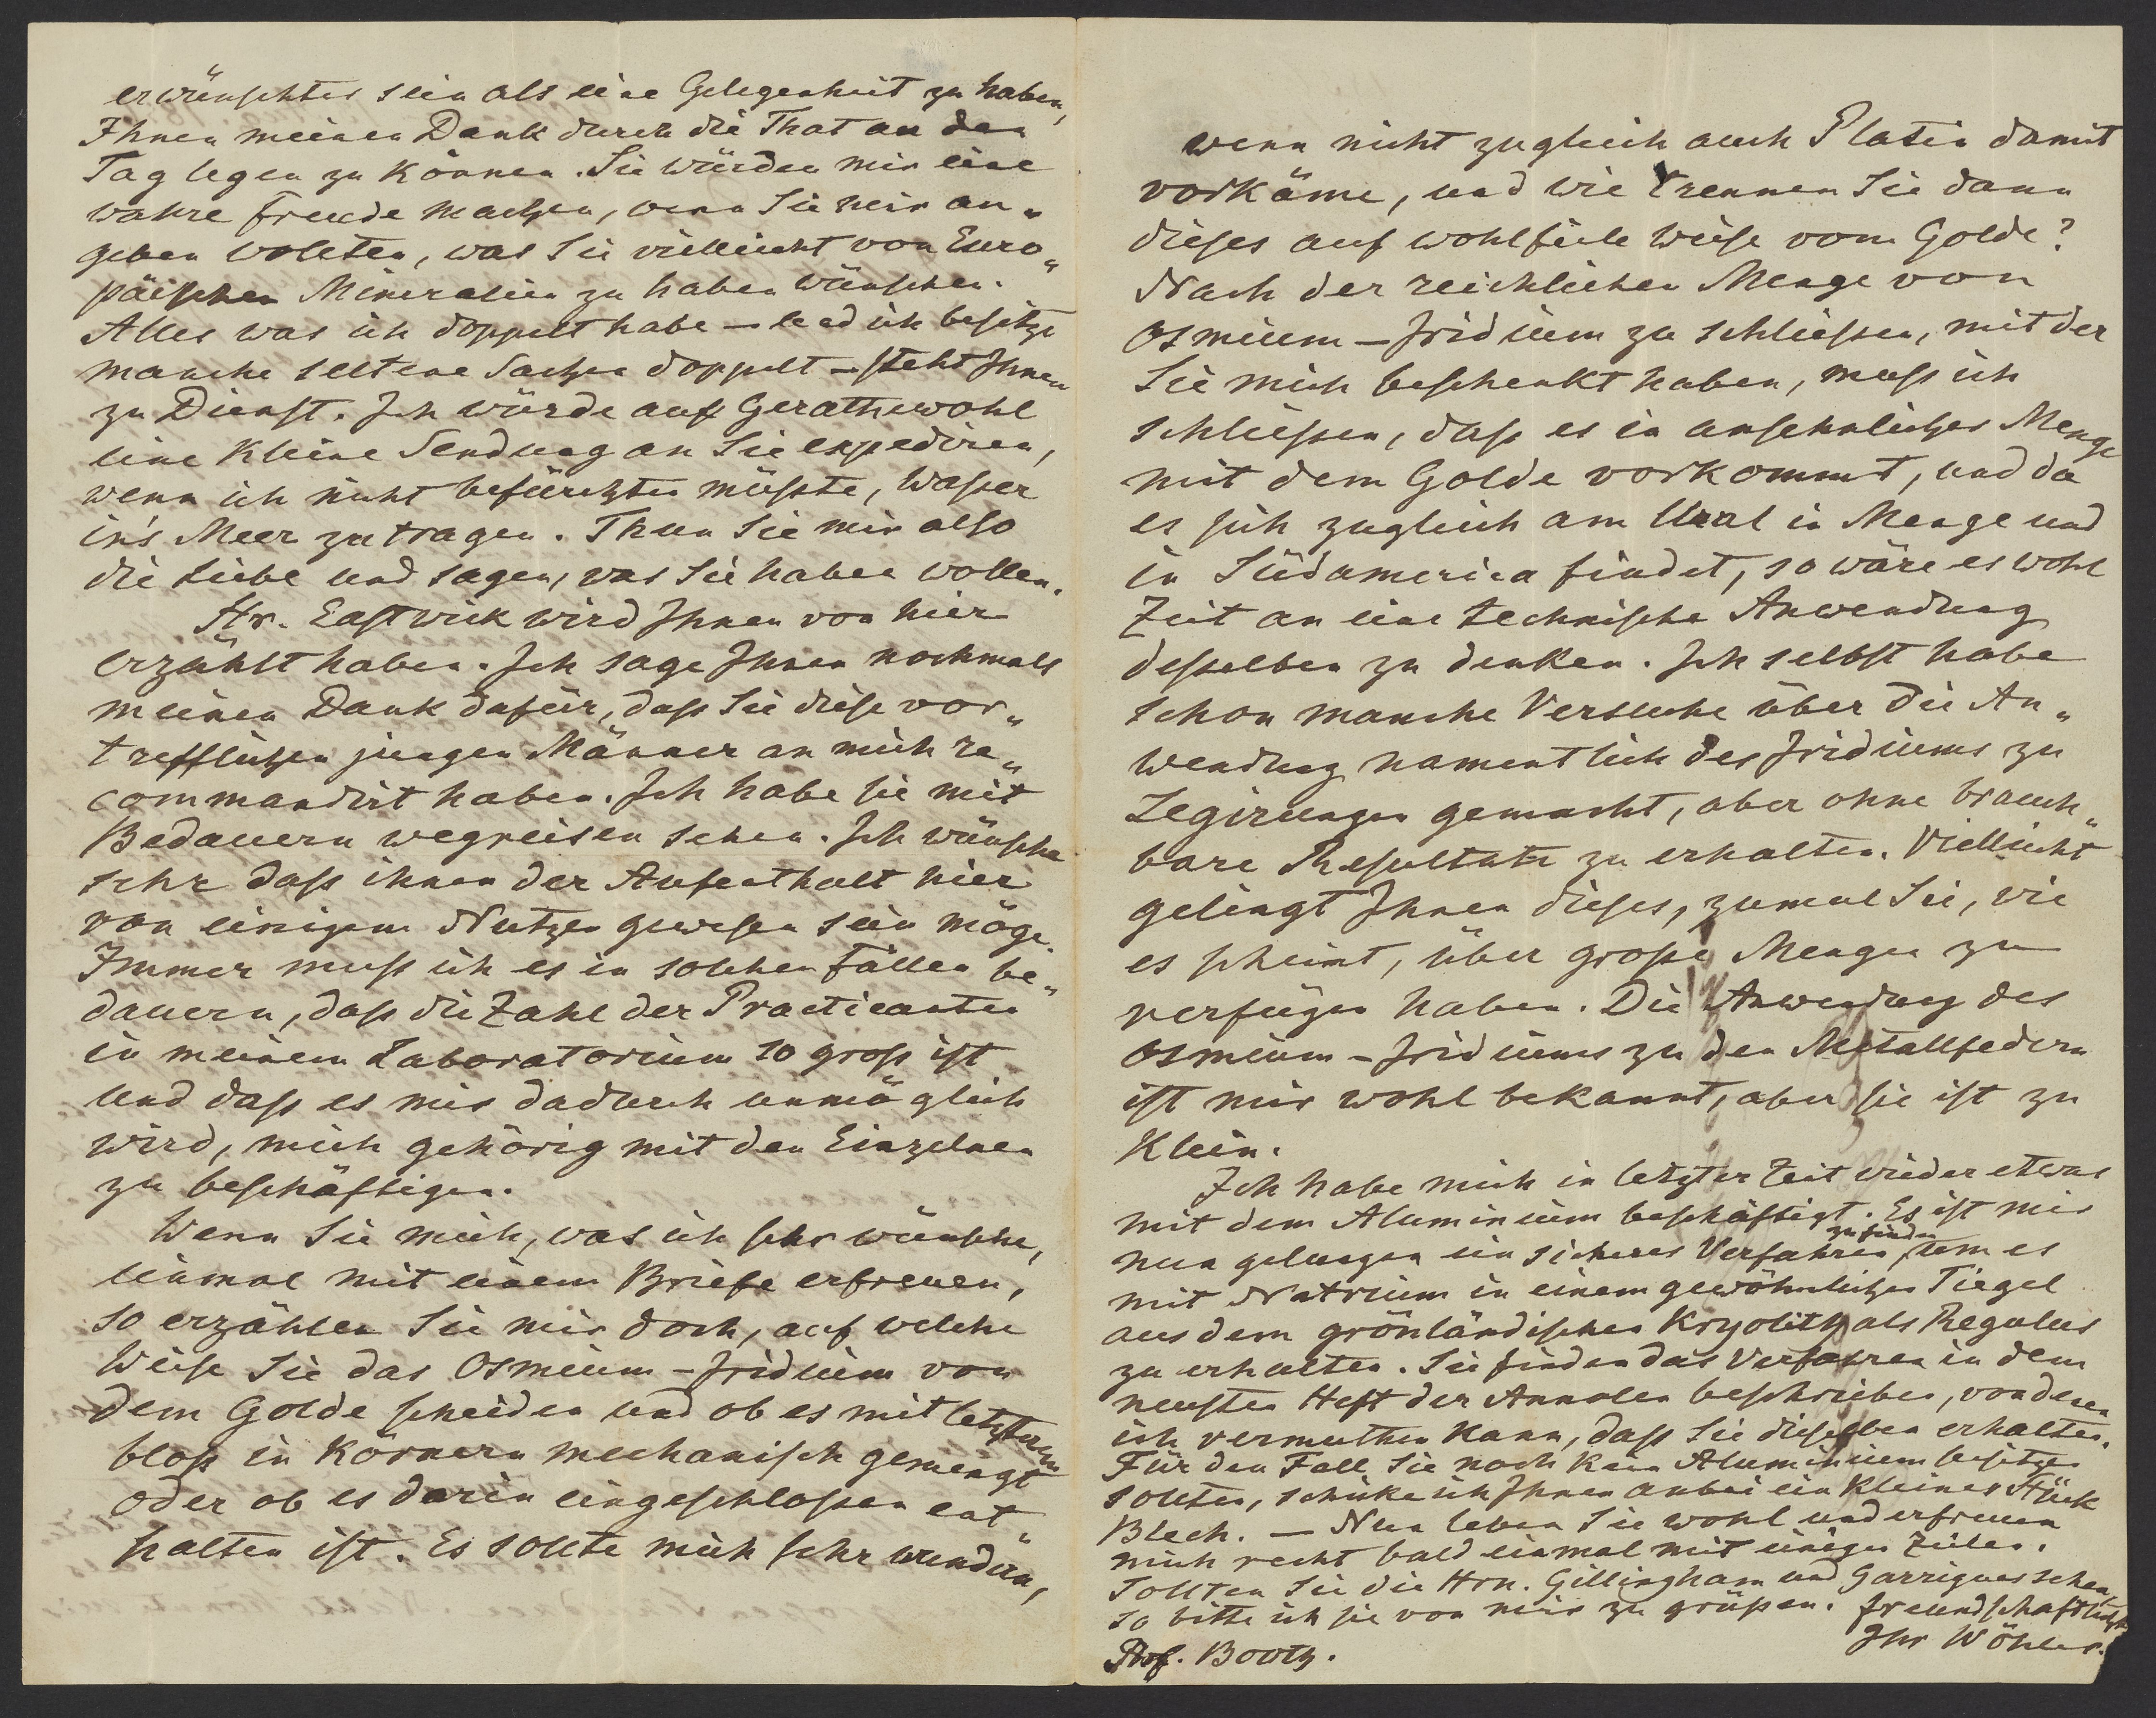 erwünschter sein als eine Gelegenheit zu haben,
Ihnen meinen Dank durch die That an den
Tag legen zu können. Sie würden mir eine
wahre Freude machen, wenn Sie mir an„
geben wollten, was Sie vielleicht von Euro„
päischen Mineralien zu haben wünschen.
Alles was ich doppelt habe – und ich besitze
manche seltene Sachen doppelt – steht Ihnen
zu Dienst. Ich würde aufs Gerathewohl
eine kleine Sendung an Sie expediren,
wenn ich nicht befürchten müsste, Wasser
in's Meer zu tragen. Thun Sie mir also
die Liebe und sagen, was Sie haben wollen.
Hr. Eastwick wird Ihnen von hier
erzählt haben. Ich sage Ihnen nochmals
meinen Dank dafür, dass Sie diese vor„
trefflichen jungen Männer an mich re„
commandirt haben. Ich habe sie mit
Bedauern wegreisen sehen. Ich wünsche
sehr dass ihnen der Aufenthalt hier
von einigem Nutzen gewesen sein möge.
Immer muss ich es in solchen Fällen be„
dauern, dass die Zahl der Practicanten
in meinem Laboratorium so gross ist
und dass es mir dadurch unmöglich
wird, mich gehörig mit den Einzelnen
zu beschäftigen.
Wenn Sie mich, was ich sehr wünsche,
einmal mit einem Briefe erfreuen,
so erzählen Sie mir doch, auf welche
Weise Sie das Osmium-Iridium von
dem Golde scheiden und ob es mit letzterem
bloss in Körnern mechanisch gemengt
oder ob es darin eingeschlossen ent„
halten ist. Es sollte mich sehr wundern,
wenn nicht zugleich auch Platin damit
vorkäme, und wie trennen Sie dann
dieses auf wohlfeile Weise vom Golde?
Nach der reichlichen Menge von
Osmium-Iridium zu schliessen, mit der
Sie mich beschenkt haben, muss ich
schliessen, dass es in ansehnlicher Menge
mit dem Golde vorkommt, und da
es sich zugleich am Ural in Menge und
in Südamerica findet, so wäre es wohl
Zeit an eine technische Anwendung
desselben zu denken. Ich selbst habe
schon manche Versuche über die An„
wendung namentlich des Iridiums zu
Legirungen gemacht, aber ohne brauch„
bare Resultate zu erhalten. Vielleicht
gelingt Ihnen dieses, zumal Sie, wie
es scheint, über grosse Mengen zu
verfügen haben. Die Anwendung des
Osmium-Iridiums zu den Metallfedern
ist mir wohl bekannt, aber sie ist zu
klein.
Ich habe mich in letzter Zeit wieder etwas
mit dem Aluminium beschäftigt. Es ist mir
nun gelungen ein sicheres Verfahren zu finden, um es
mit Natrium in einem gewöhnlichen Tiegel
aus dem grönländischen Kryolith als Regulus
zu erhalten. Sie finden das Verfahren in dem
neusten Heft der Annalen beschrieben, von denen
ich vermuthen kann, dass Sie dieselben erhalten.
Für den Fall Sie noch kein Aluminium besitzen
sollten, schicke ich Ihnen anbei ein kleines Stück
Blech. – Nun leben Sie wohl und erfreuen
mich recht bald einmal mit einigen Zeilen.
Sollten Sie die Hrn. Gillingham und Garrigues sehen,
so bitte ich sie von mir zu grüssen. Freundschaftlichst
Ihr Wöhler.
Prof. Booth.